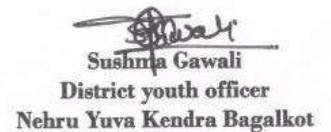 Sushma Gawali
District youth officer
Nehru Yuva Kendra Bagalkot